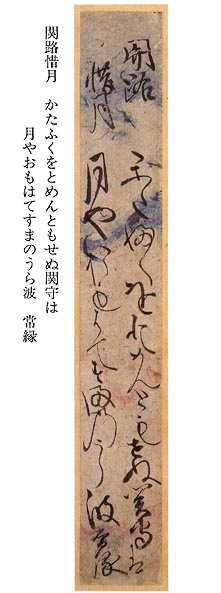 関路
惜月
かたふくをとめんともせぬ関守は
月やおもはてすまのうら波 常縁
関路惜月　かたふくをとめんともせぬ関守は
月やおもはてすまのうら波　常縁